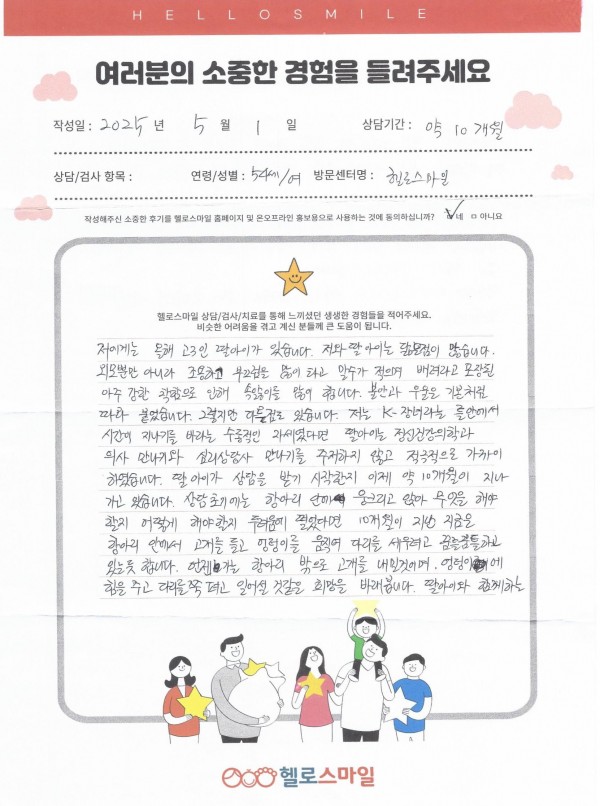 HELLOSMILE
여러분의 소중한 경험을 들려주세요
작성일 : 2025 년 5 월 1 일 상담기간 : 약 10개월
상담/검사 항목 : 연령/성별 : 54세/여 방문센터명 : 헬로스마일
작성해주신 소중한 후기를 헬로스마일 홈페이지 및 온오프라인 홍보용으로 사용하는 것에 동의하십니까? ☑네 □아니요
헬로스마일 상담/검사/치료를 통해 느끼셨던 생생한 경험들을 적어주세요.
비슷한 어려움을 겪고 계신 분들께 큰 도움이 됩니다.
저에게는 올해 고3인 딸아이가 있습니다. 저와 딸아이는 닮은점이 많습니다.
외모뿐만 아니라 조용하고 부끄럼을 많이 타고 말수가 적으며 배려라고 포장된
아주 강한 착함으로 인해 속앓이를 많이 합니다. 불안과 우울은 기본처럼
따라 붙었습니다. 그렇지만 다른점도 있습니다. 저는 K-장녀라는 틀안에서
시간이 지나기를 바라는 수동적인 자세였다면 딸아이는 정신건강의학과
의사 만나기와 심리상담사 만나기를 주저하지 않고 적극적으로
하였습니다. 딸아이가 상담을 받기 시작한지 이제 약 10개월이 지나
가고 있습니다. 상담초기에는 항아리 안에 웅크리고 앉아 무엇을 해야
할지 어떻게 해야할지 두려움에 떨었다면 10개월이 지난 지금은
항아리 안에서 고개를 들고 엉덩이를 움직여 다리를 세우려고 꿈틀꿈틀하고
있는듯 합니다. 언젠가는 항아리 밖으로 고개를 내밀것이며, 엉덩이에
힘을 주고 다리를 쭉 펴고 일어설 것같은 희망을 바래봅니다. 딸아이와 함께하는
헬로스마일